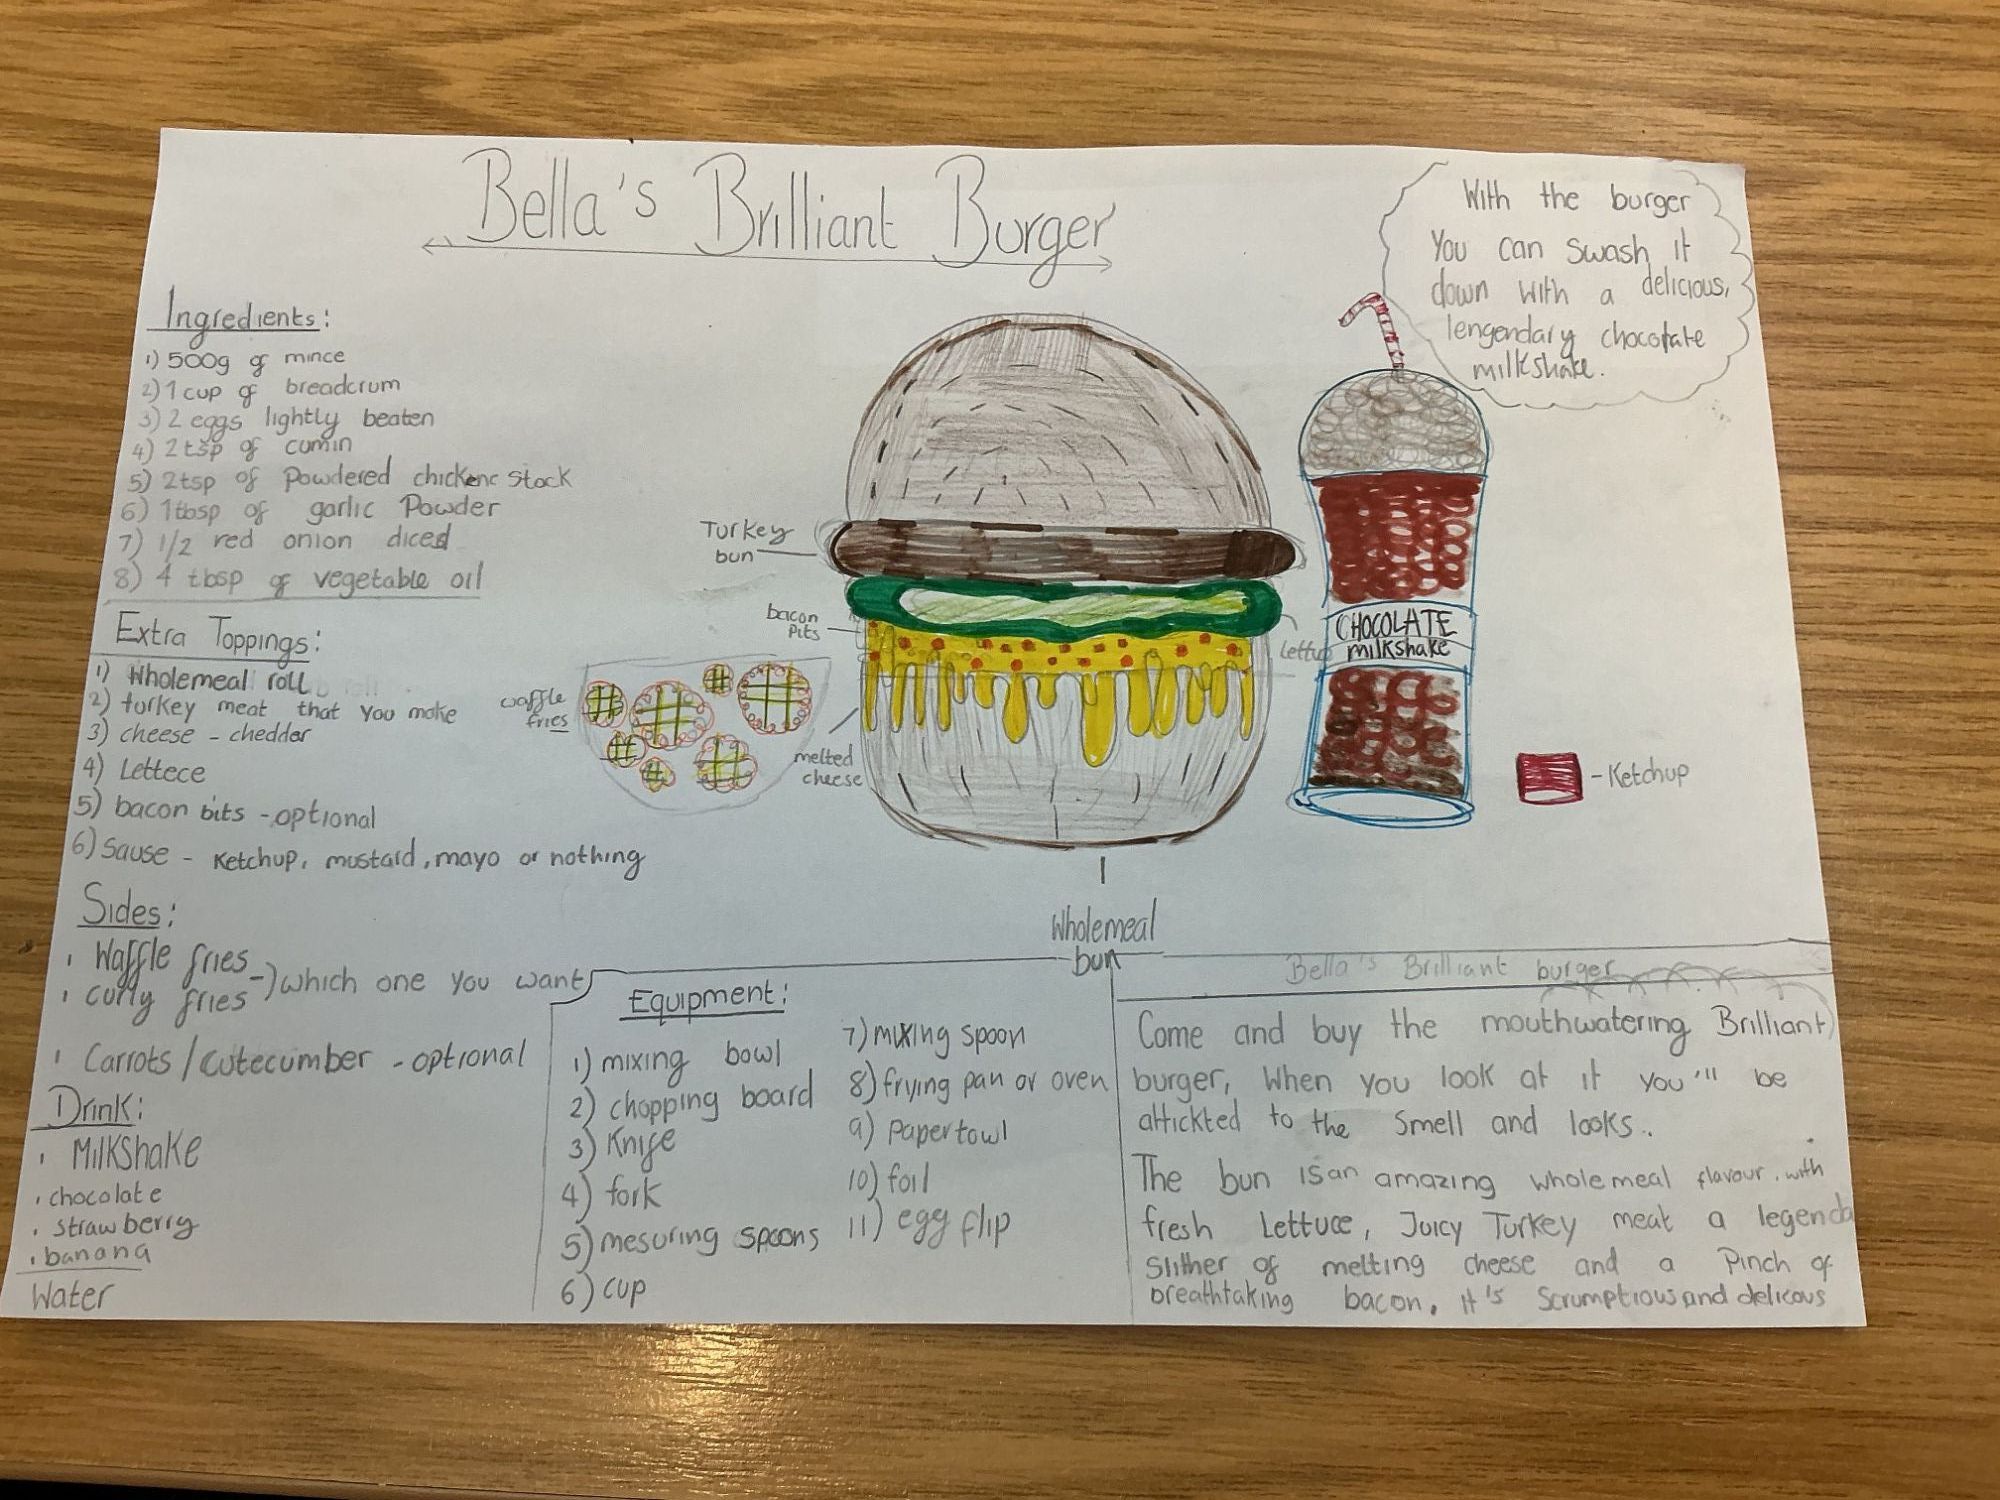 Bella's Brilliant Burger
With the burger
You can swash it
down with a delicious,
lengendary chocolate
milkshake.
Ingredients:
1) 500g of mince
2) 1 cup of breadcrum
3) 2 eggs lightly beaten
4) 2 tsp of cumin
5) 2tsp of Powdered chickenc stock
6) 1tbsp of garlic Powder
7) 1/2 red onion diced
8) 4 tbsp of vegetable oil
Extra Toppings:
1) Wholemeal roll
2) turkey meat that you make
3) cheese - chedder
4) Lettece
5) bacon bits - optional
6) Sause - Ketchup, mustard, mayo or nothing
Sides:
Waffle fries
curly fries
-) which one you want
Carrots / Cutecumber - optional
Drink:
Milkshake
chocolate
strawberry
banana
Water
Turkey
bun
bacon
Pits
waffle
fries
melted
cheese
Lettu
Wholemeal
bun
CHOCOLATE
milkshake
- Ketchup
Equipment:
1) mixing bowl
2) chopping board
3) Knife
4) fork
5) mesuring spoons
6) cup
7) mixing spoon
8) frying pan or oven
9) papertowl
10) foil
11) egg flip
Bella's Brilliant burger
Come and buy the mouthwatering Brilliant
burger, When you look at it you'll be
attickted to the smell and looks.
The bun is an amazing wholemeal flavour. with
fresh Lettuce, Juicy Turkey meat a legenda
Slither of melting cheese and a Pinch of
breathtaking bacon. it's Scrumptious and delicous